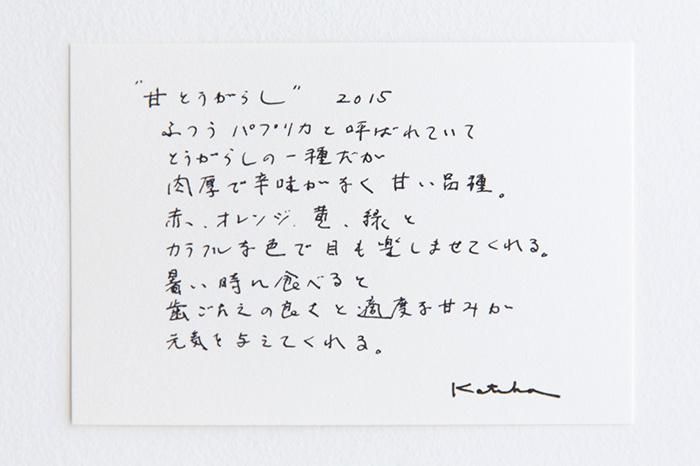 "甘とうがらし" 2015
ふつうパプリカと呼ばれていて
とうがらしの一種だが
肉厚で辛味がなく甘い品種。
赤、オレンジ、黄、緑と
カラフルな色で目も楽しませてくれる。
暑い時に食べると
歯ごたえの良さと適度な甘みが
元気を与えてくれる。